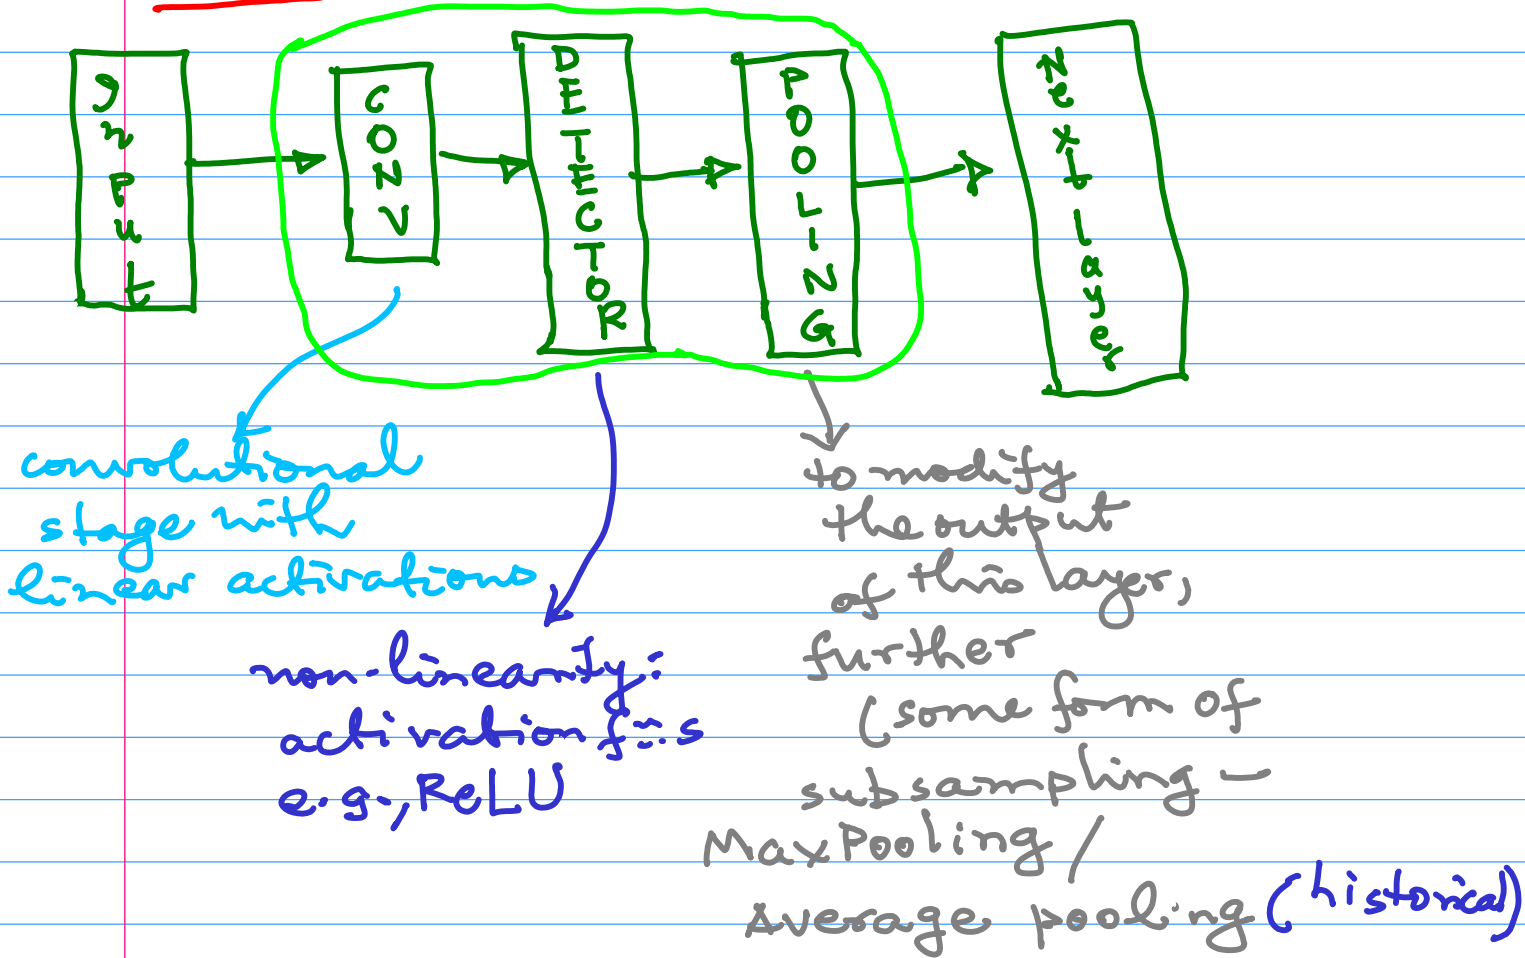 Input
CONV
DETECTOR
POOLING
Next layer
convolutional
stage with
linear activations
non-linearity:
activation f::s
e.g., ReLU
to modify
the output
of this layer,
further
(some form of
subsampling —
MaxPooling /
Average pooling (historical)